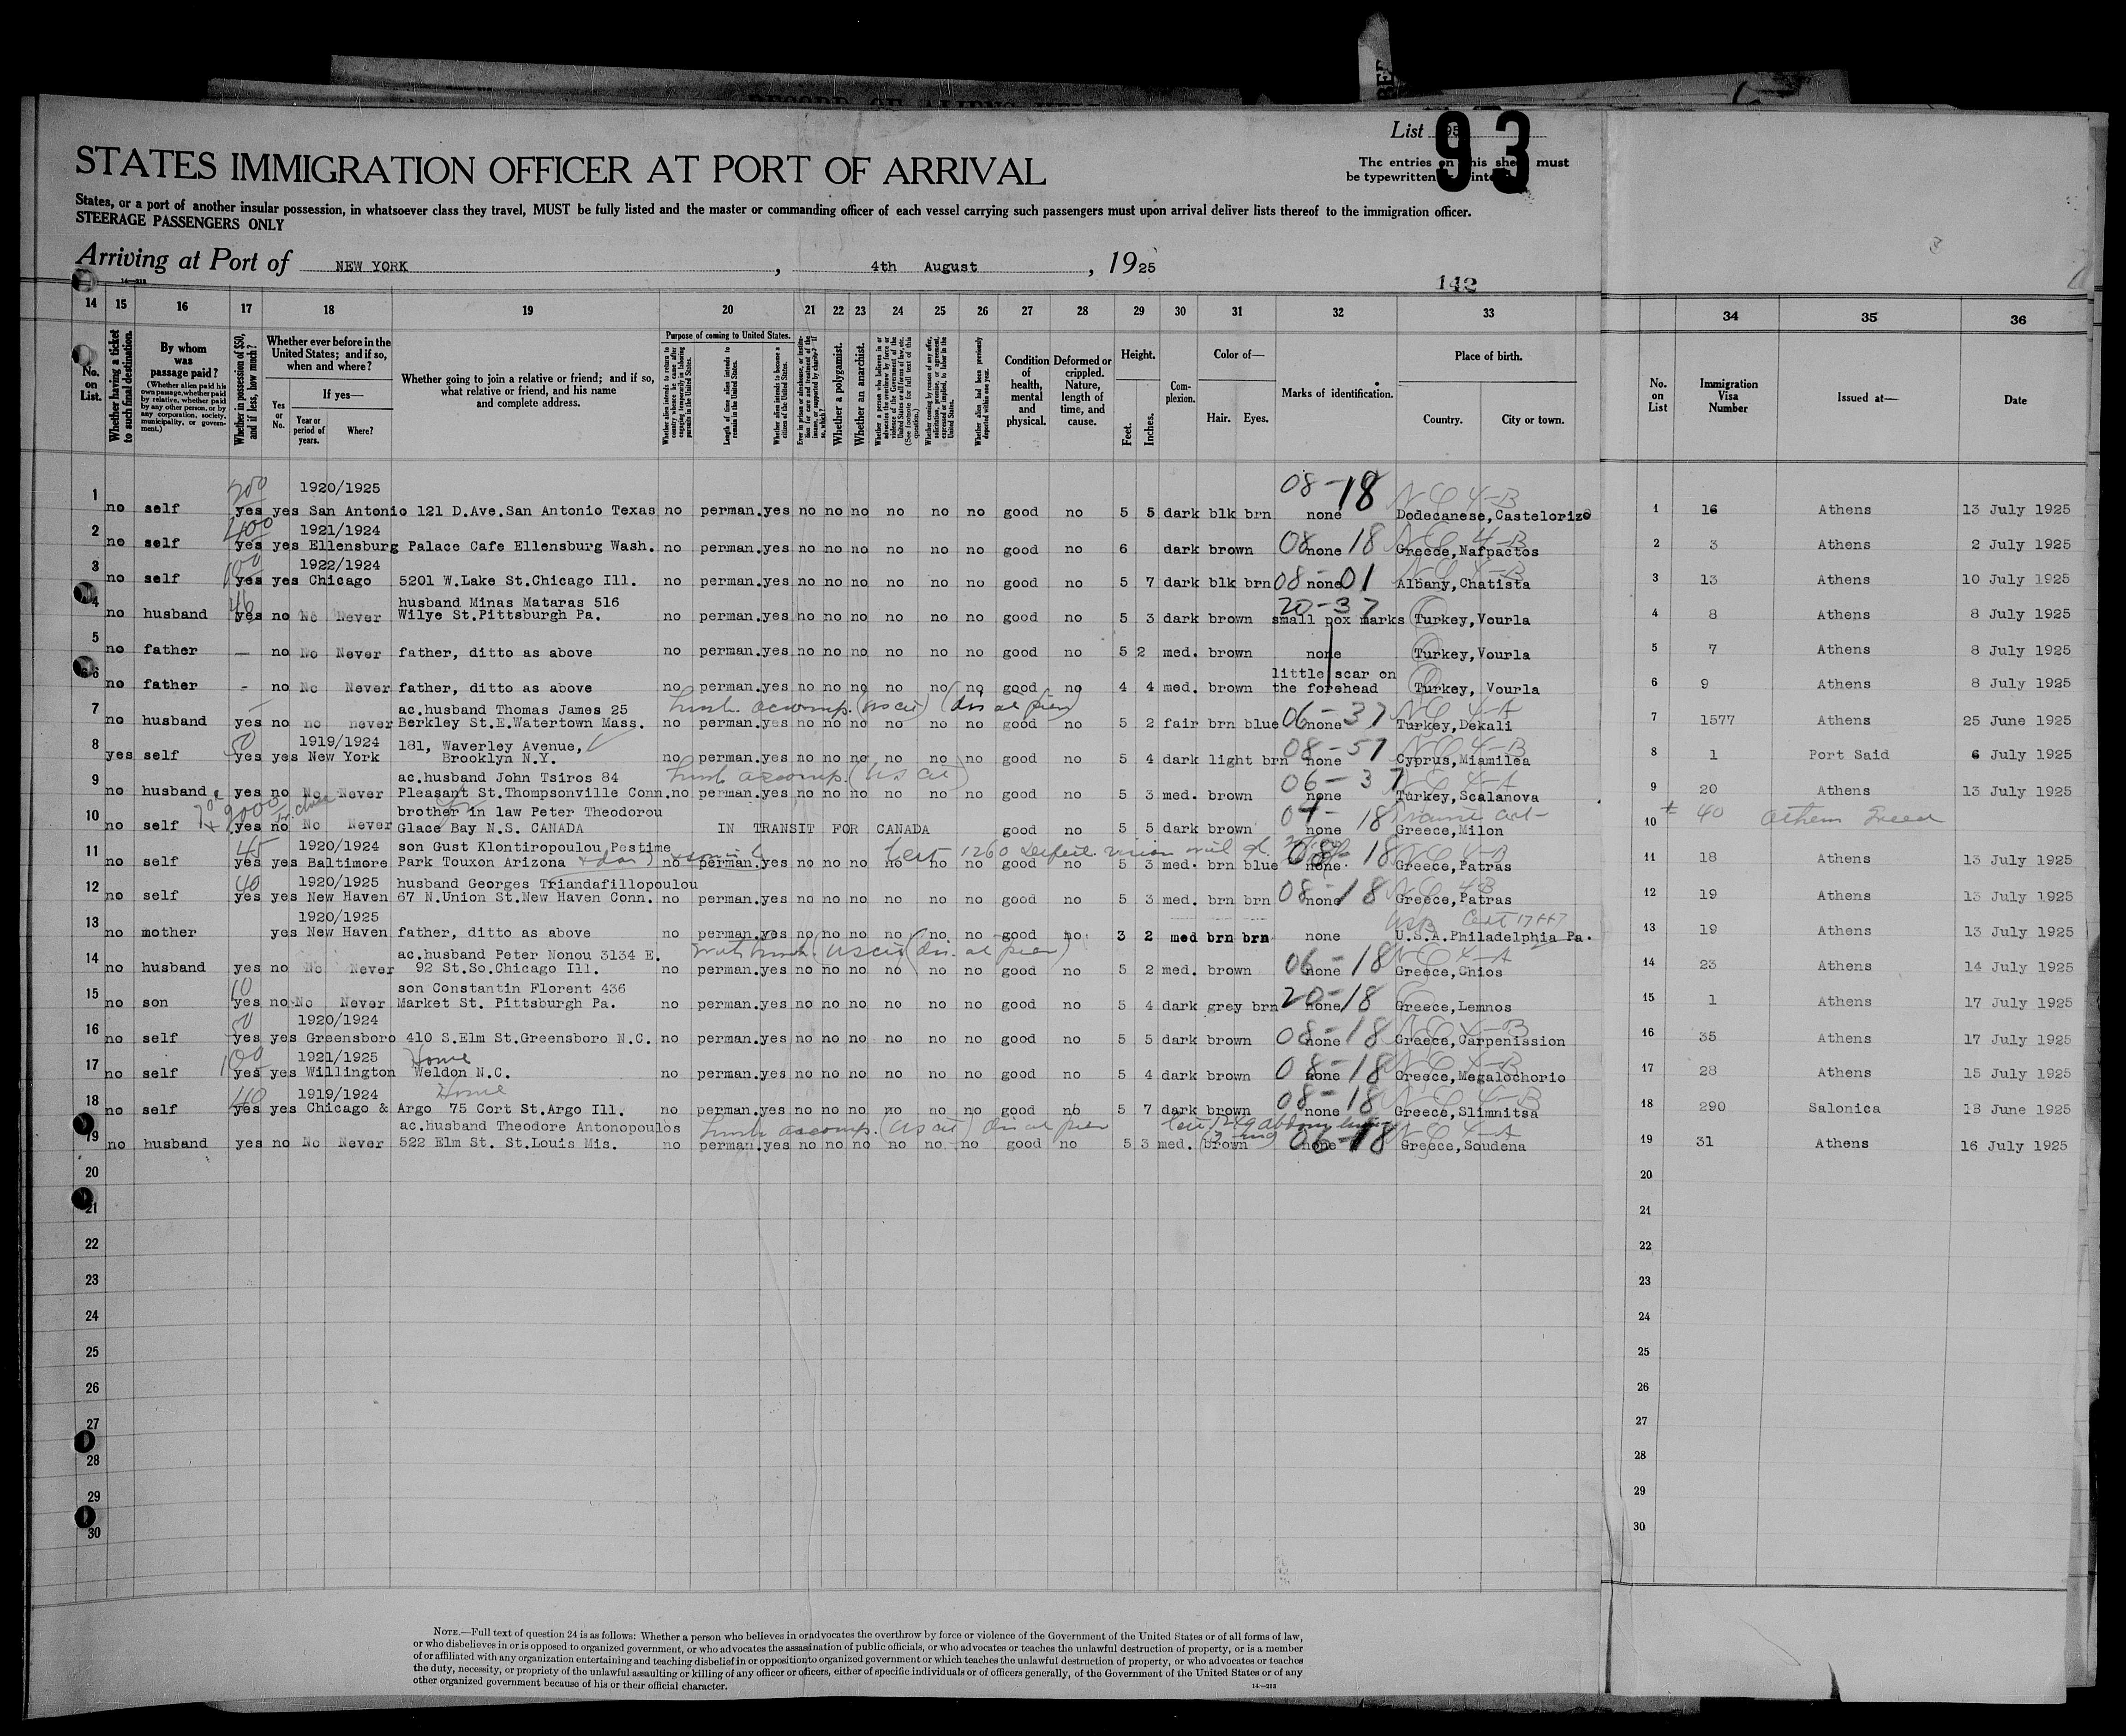 List
93
The entries on this sheet must
be typewritten
STATES IMMIGRATION OFFICER AT PORT OF ARRIVAL
States, or a port of another insular possession, in whatsoever class they travel, MUST be fully listed and the master or commanding officer of each vessel carrying such passengers must upon arrival deliver lists thereof to the immigration officer.
STEERAGE PASSENGERS ONLY
Arriving at Port of NEW YORK, 4th August, 1925
142
14 15 16 17 18 19 20 21 22 23 24 25 26 27 28 29 30 31 32 33 34 35 36
No. on List.
Whether having a ticket to such final destination.
By whom was passage paid?
(Whether alien paid his own passage, whether paid by relative, whether paid by any other person, or by any corporation, society, municipality, or government.)
Whether in possession of $50, and if less, how much?
Whether ever before in the United States; and if so, when and where?
Yes or No.
If yes—
Year or period of years.
Where?
Whether going to join a relative or friend; and if so, what relative or friend, and his name and complete address.
Purpose of coming to United States.
Whether alien intends to return to country whence he came after engaging temporarily in laboring pursuits in the United States.
Length of time alien intends to remain in the United States.
Whether alien intends to become a citizen of the United States.
Whether a polygamist.
Whether an anarchist.
Whether alien had been previously deported within one year.
Condition of health, mental and physical.
Deformed or crippled. Nature, length of time, and cause.
Height.
Feet. Inches.
Complexion.
Color of—
Hair. Eyes.
Marks of identification.
Place of birth.
Country. City or town.
No. on List
Immigration Visa Number
Issued at—
Date
1920/1925 08-18 NC 4-B
1 no self 200 yes yes San Antonio 121 D.Ave.San Antonio Texas no perman. yes no no no no no no good no 5 5 dark blk brn none Dodecanese,Castelorizo 1 16 Athens 13 July 1925
1921/1924 NC 4-B
2 no self 400 yes yes Ellensburg Palace Cafe Ellensburg Wash. no perman. yes no no no no no no good no 6 dark brown 08 none 18 Greece,Nafpactos 2 3 Athens 2 July 1925
1922/1924 NC 4-B
3 no self 100 yes yes Chicago 5201 W.Lake St.Chicago Ill. no perman. yes no no no no no no good no 5 7 dark blk brn 08 none 01 Albany,Chatista 3 13 Athens 10 July 1925
husband Minas Mataras 516 20-37
4 no husband 46 yes no No Never Wilye St.Pittsburgh Pa. no perman. yes no no no no no no good no 5 3 dark brown small pox marks Turkey,Vourla 4 8 Athens 8 July 1925
5 no father — no No Never father, ditto as above no perman. yes no no no no no no good no 5 2 med. brown none Turkey,Vourla 5 7 Athens 8 July 1925
little scar on
6 no father - no No Never father, ditto as above no perman. yes no no no no no no good no 4 4 med. brown the forehead Turkey, Vourla 6 9 Athens 8 July 1925
ac.husband Thomas James 25 husb. accomp. (US cit) (dis at pier) NC 4-A
7 no husband yes no no never Berkley St.E.Watertown Mass. no perman. yes no no no no no no good no 5 2 fair brn blue 06 none 37 Turkey,Dekali 7 1577 Athens 25 June 1925
1919/1924 181, Waverley Avenue, 08-57 NC 4-B
8 yes self 50 yes yes New York Brooklyn N.Y. no perman. yes no no no no no no good no 5 4 dark light brn none Cyprus,Miamilea 8 1 Port Said 6 July 1925
ac.husband John Tsiros 84 husb accomp. (US cit) 06-37 NC 4-A
9 no husband yes no No Never Pleasant St.Thompsonville Conn. no perman. yes no no no no no no good no 5 3 med. brown none Turkey,Scalanova 9 20 Athens 13 July 1925
brother in law Peter Theodorou 04-
10 no self yes no No Never Glace Bay N.S. CANADA IN TRANSIT FOR CANADA good no 5 5 dark brown none 18 Greece,Milon 10 40 Athens Greece
1920/1924 son Gust Klontiropoulou,Pestime Cert 1260 NC 4-B
11 no self 45 yes yes Baltimore Park Touxon Arizona no perman. yes no no no no no no good no 5 3 med. brn blue 08- 18 none. Greece,Patras 11 18 Athens 13 July 1925
1920/1925 husband Georges Triandafillopoulou 4-B
12 no self 40 yes yes New Haven 67 N.Union St.New Haven Conn. no perman. yes no no no no no no good no 5 3 med. brn brn 08 none 18 Greece,Patras 12 19 Athens 13 July 1925
1920/1925 USB Cert 17447
13 no mother yes New Haven father, ditto as above no perman. yes no no no no no no good no 3 2 med brn brn none U.S.A.Philadelphia Pa. 13 19 Athens 13 July 1925
ac.husband Peter Nonou 3134 E. with husb. US cit (dis. at pier) NC 4-A
14 no husband yes no No Never 92 St.So.Chicago Ill. no perman. yes no no no no no no good no 5 2 med. brown 06 none 18 Greece,Chios 14 23 Athens 14 July 1925
son Constantin Florent 436
15 no son 10 yes no No Never Market St. Pittsburgh Pa. no perman. yes no no no no no no good no 5 4 dark grey brn 20-18 none Greece,Lemnos 15 1 Athens 17 July 1925
1920/1924 NC 4-B
16 no self 50 yes yes Greensboro 410 S.Elm St.Greensboro N.C. no perman. yes no no no no no no good no 5 5 dark brown 08-18 none Greece,Carpenission 16 35 Athens 17 July 1925
1921/1925 Home NC 4-B
17 no self 100 yes yes Willington Weldon N.C. no perman. yes no no no no no no good no 5 4 dark brown 08-18 none Greece,Megalochorio 17 28 Athens 15 July 1925
1919/1924 Home 08-18 NC 4-B
18 no self 40 yes yes Chicago & Argo 75 Cort St.Argo Ill. no perman. yes no no no no no no good no 5 7 dark brown none Greece,Slimnitsa 18 290 Salonica 18 June 1925
ac.husband Theodore Antonopoulos husb accomp. (US cit) dis at pier NC 4-A
19 no husband yes no No Never 522 Elm St. St.Louis Mis. no perman. yes no no no no no no good no 5 3 med. brown 06-18 none Greece,Soudena 19 31 Athens 16 July 1925
20 20
21 21
22 22
23 23
24 24
25 25
26 26
27 27
28 28
29 29
30 30
NOTE.—Full text of question 24 is as follows: Whether a person who believes in or advocates the overthrow by force or violence of the Government of the United States or of all forms of law,
or who disbelieves in or is opposed to organized government, or who advocates the assassination of public officials, or who advocates or teaches the unlawful destruction of property, or is a member
of or affiliated with any organization entertaining and teaching disbelief in or opposition to organized government or which teaches the unlawful destruction of property, or who advocates or teaches
the duty, necessity, or propriety of the unlawful assaulting or killing of any officer or officers, either of specific individuals or of officers generally, of the Government of the United States or of any
other organized government because of his or their official character.
14—213